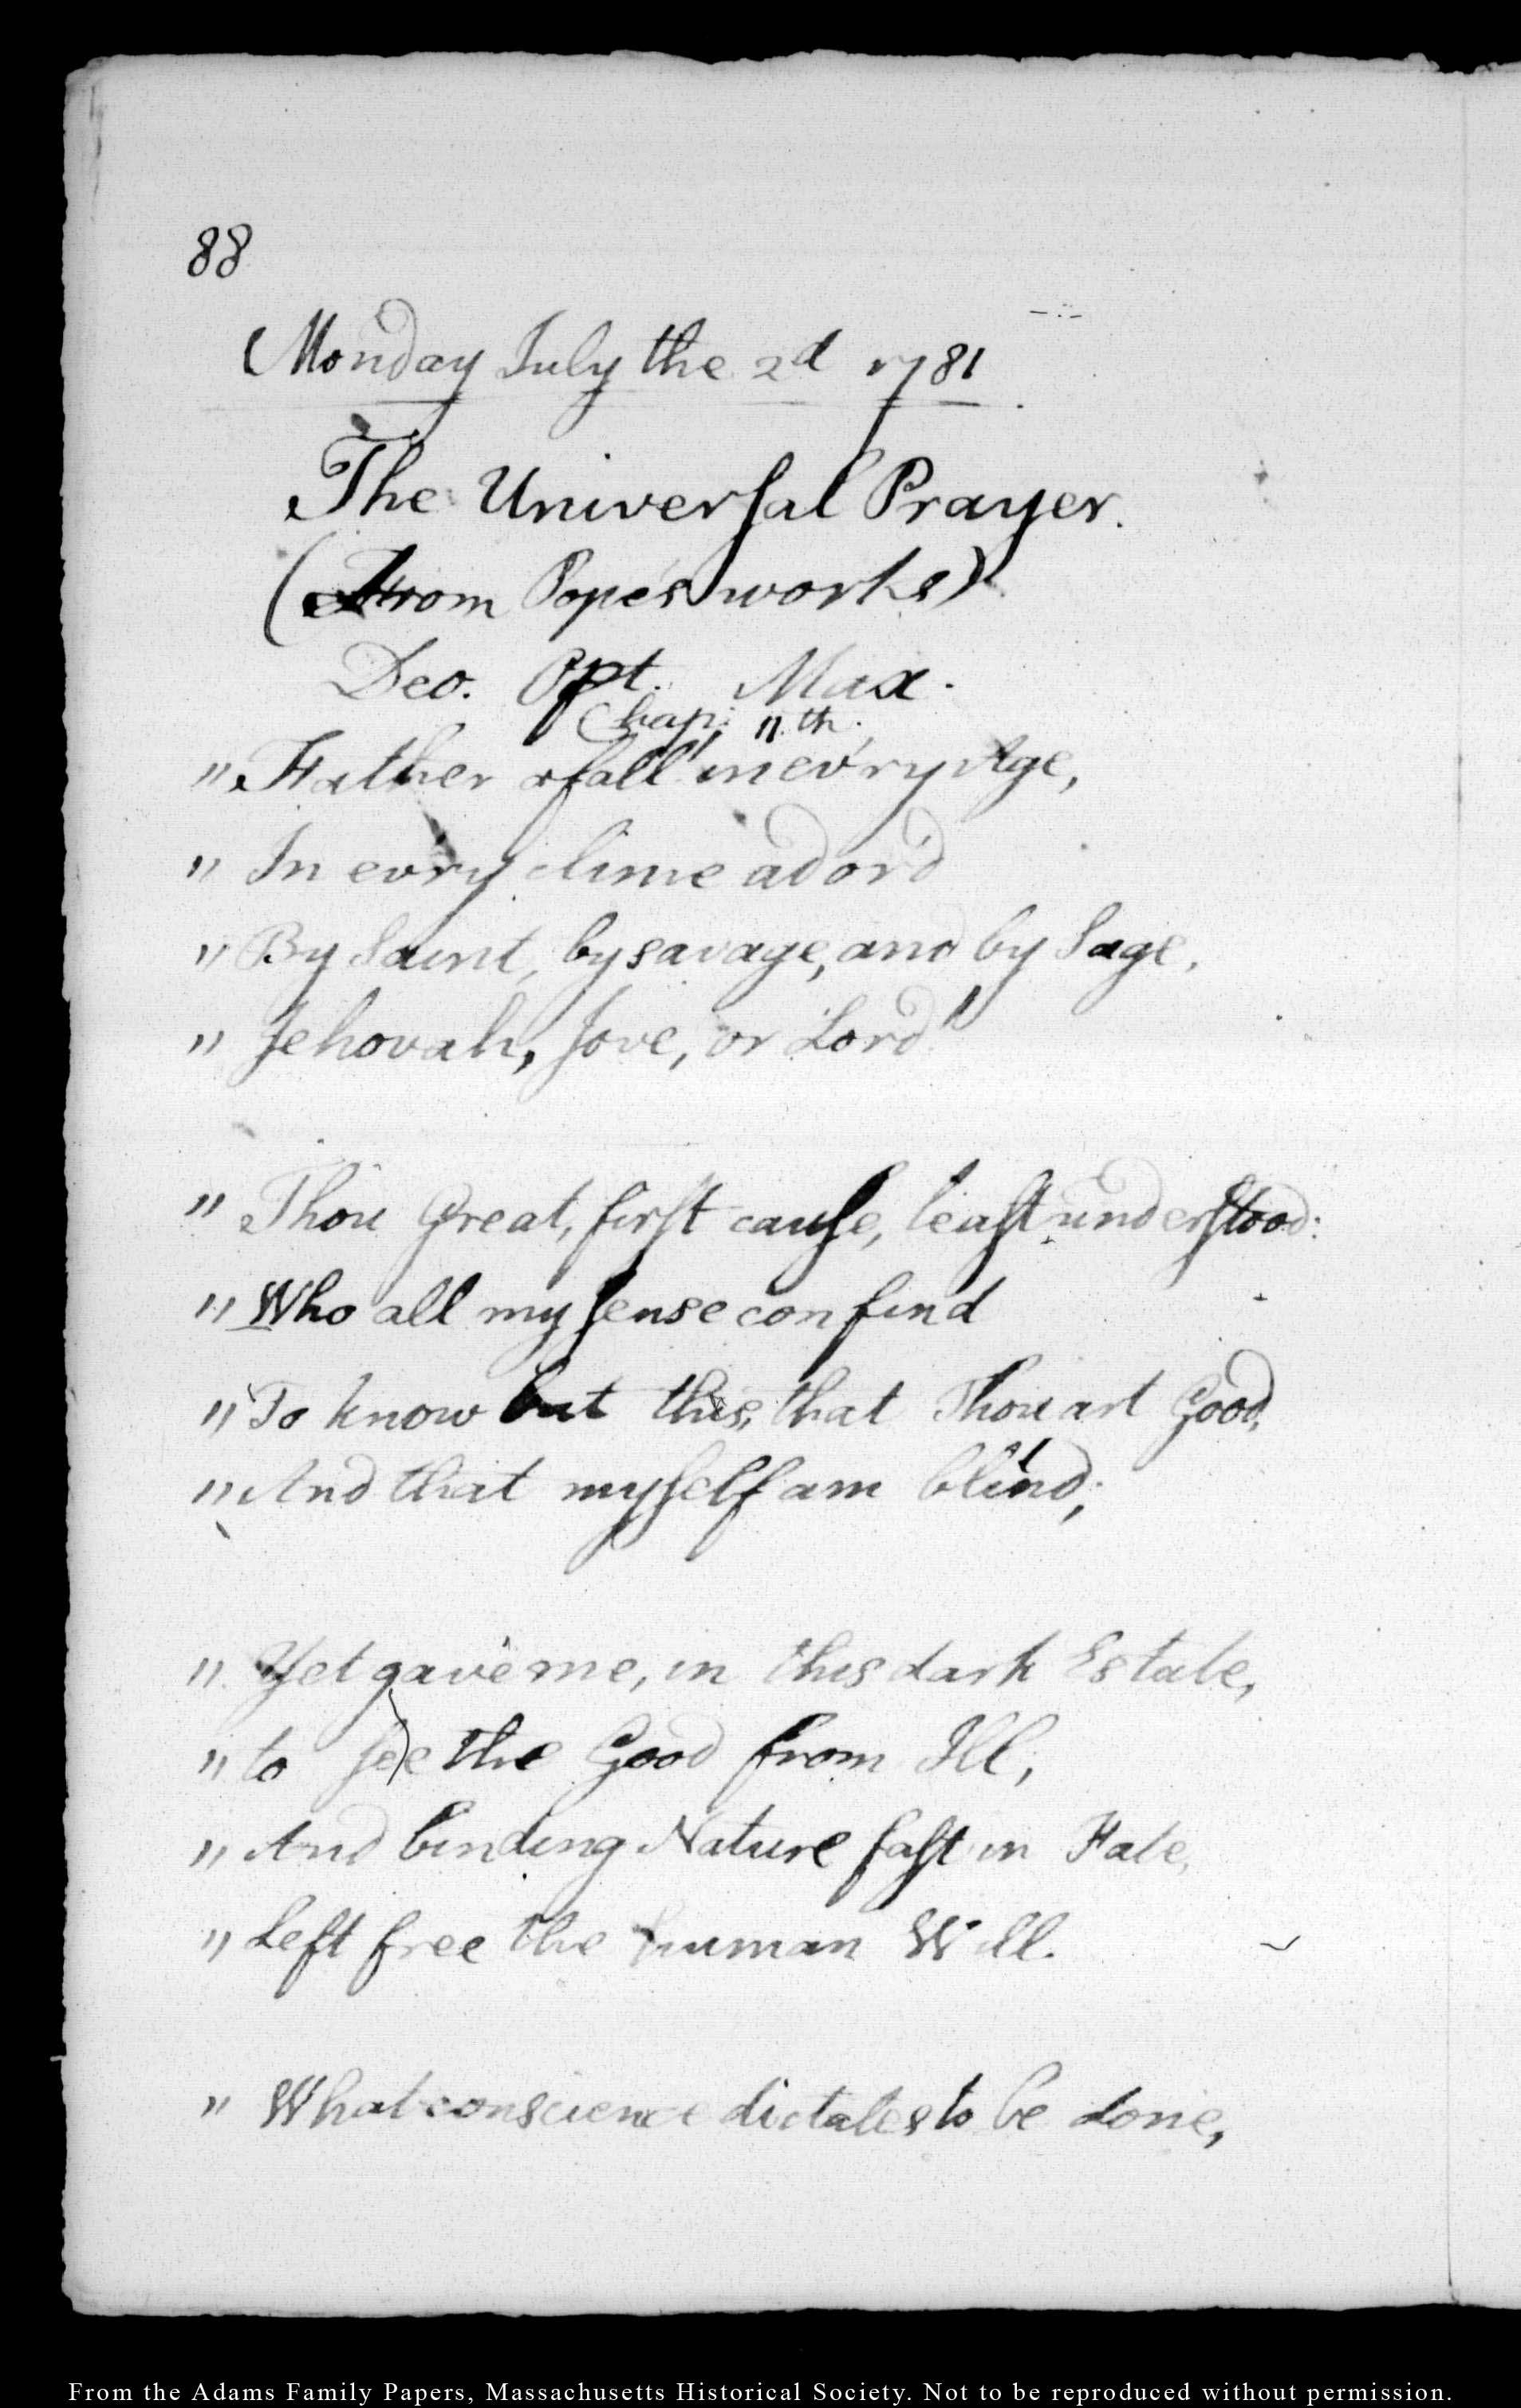 88
Monday July the 2d 1781
The Universal Prayer.
(From Pope's works)
Deo. Opt. Max.
Chap: 11th.
" Father of all! in ev'ry Age,
" In ev'ry clime ador'd
" By Saint, by savage, and by Sage,
" Jehovah, Jove, or Lord!
" Thou Great, first cause, least understood:
" Who all my sense confind
" To know but this, that Thou art Good,
" And that myself am blind;
" Yet gave me, in this dark Estate,
" to see the Good from Ill,
" And binding Nature fast in Fate,
" Left free the human Will.
" What conscience dictates to be done,
From the Adams Family Papers, Massachusetts Historical Society. Not to be reproduced without permission.